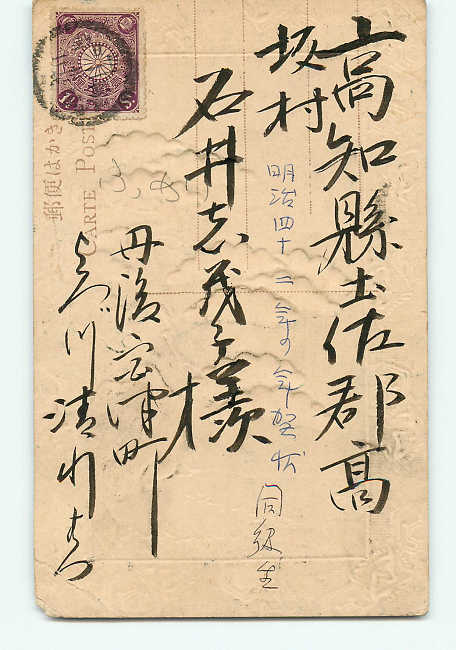 高知縣土佐郡高
坂村
石井志茂子様
明治四十二年の年賀状 同級生
丹後宮津町
郵便はかき
CARTE POST